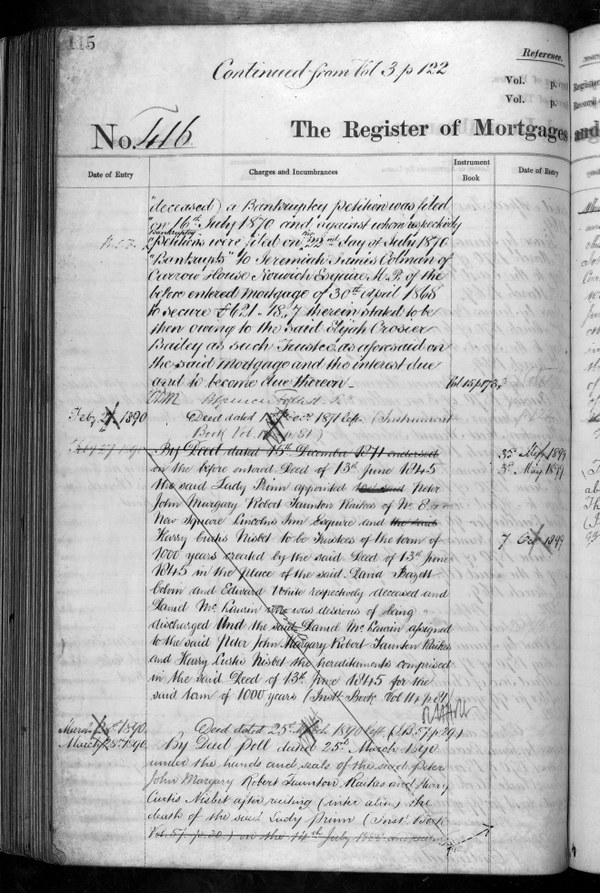 115
Continued from Vol 3 p 122
Reference.
Vol. p.
Vol. p.
No. 416
The Register of Mortgages and
Date of Entry
Charges and Incumbrances
Instrument Book
Date of Entry
deceased) a Bankruptcy petition was filed
on 16th July 1870 and against whom respectively
Bankruptcy
Petitions were filed on the 22nd day of July 1870
"Bankrupts" To Jeremiah James Colman of
Carrow House Norwich Esquire M.P. of the
before entered Mortgage of 30th April 1868
to secure £621.18.7 therein stated to be
then owing to the said Elijah Crosier
Bailey as such Trustee as aforesaid on
the said Mortgage and the interest due
and to become due thereon_
Vol 15 p 173
Feby 27 1890
Deed dated 1871 left (Instrument
Book Vol
By Deed dated 15th December 1871 endorsed
3rd May 1899
on the before entered Deed of 13th June 1845
3rd May 1899
the said Lady Prinn appointed the said Peter
John Margary Robert Taunton Raikes of No.
New Square Lincolns Inn Esquire and the said
Harry Curtis Nisbet to be Trustees of the term of
7 Oct 1899
1000 years created by the said Deed of 13th June
1845 in the place of the said David
Colvin and Edward White respectively deceased and
Daniel Mc Laurin who was desirous of being
discharged And the said Daniel Mc Laurin assigned
to the said Peter John Margary Robert Taunton Raikes
and Harry Curtis Nisbet the hereditaments comprised
in the said Deed of 13th June 1845 for the
said term of 1000 years (Instt Book Vol 14 p 81)
March 28th 1890
Deed dated 25th March 1890 left (I.B. 57 p 29)
March 28th 1890
By Deed Poll dated 25th March 1890
under the hands and seals of the said Peter
John Margary Robert Taunton Raikes and Harry
Curtis Nisbet after reciting (inter alia) the
death of the said Lady Prinn (Inst. Book
Vol. 57 p. 30) on the 14th July